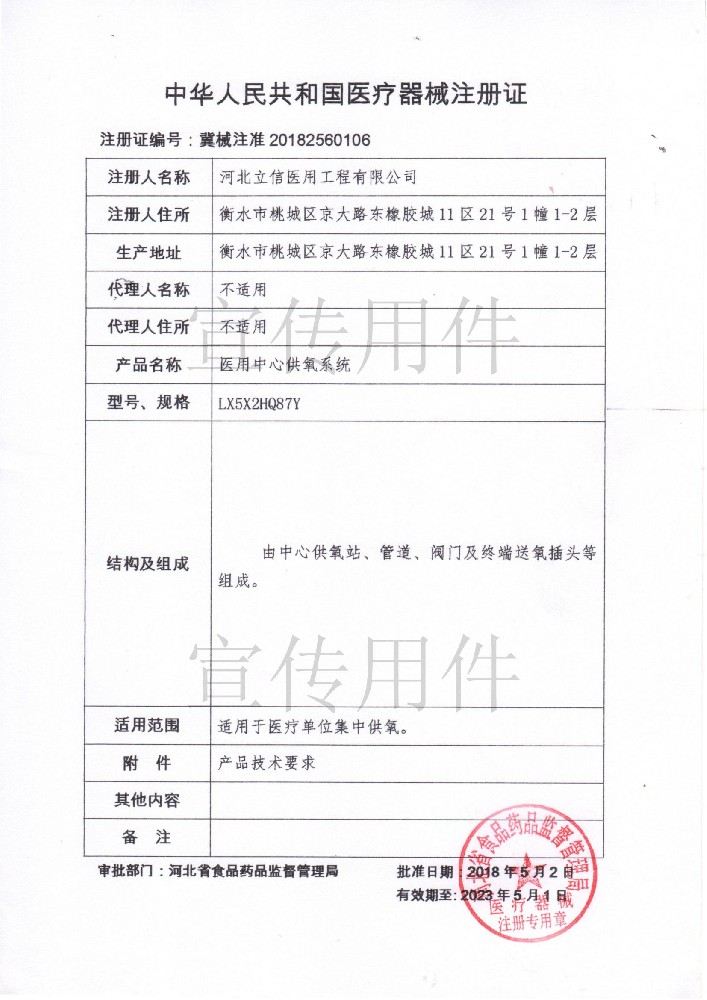 中华人民共和国医疗器械注册证
注册证编号：冀械注准 20182560106
注册人名称 河北立信医用工程有限公司
注册人住所 衡水市桃城区京大路东橡胶城 11 区 21 号 1 幢 1-2 层
生产地址 衡水市桃城区京大路东橡胶城 11 区 21 号 1 幢 1-2 层
代理人名称 不适用
宣传用件
代理人住所 不适用
产品名称 医用中心供氧系统
型号、规格 LX5X2HQ87Y
结构及组成 由中心供氧站、管道、阀门及终端送氧插头等
组成。
宣传用件
适用范围 适用于医疗单位集中供氧。
附 件 产品技术要求
其他内容
备 注
审批部门：河北省食品药品监督管理局 批准日期：2018 年 5 月 2 日
有效期至：2023 年 5 月 1 日
河北省食品药品监督管理局
医疗器械
注册专用章